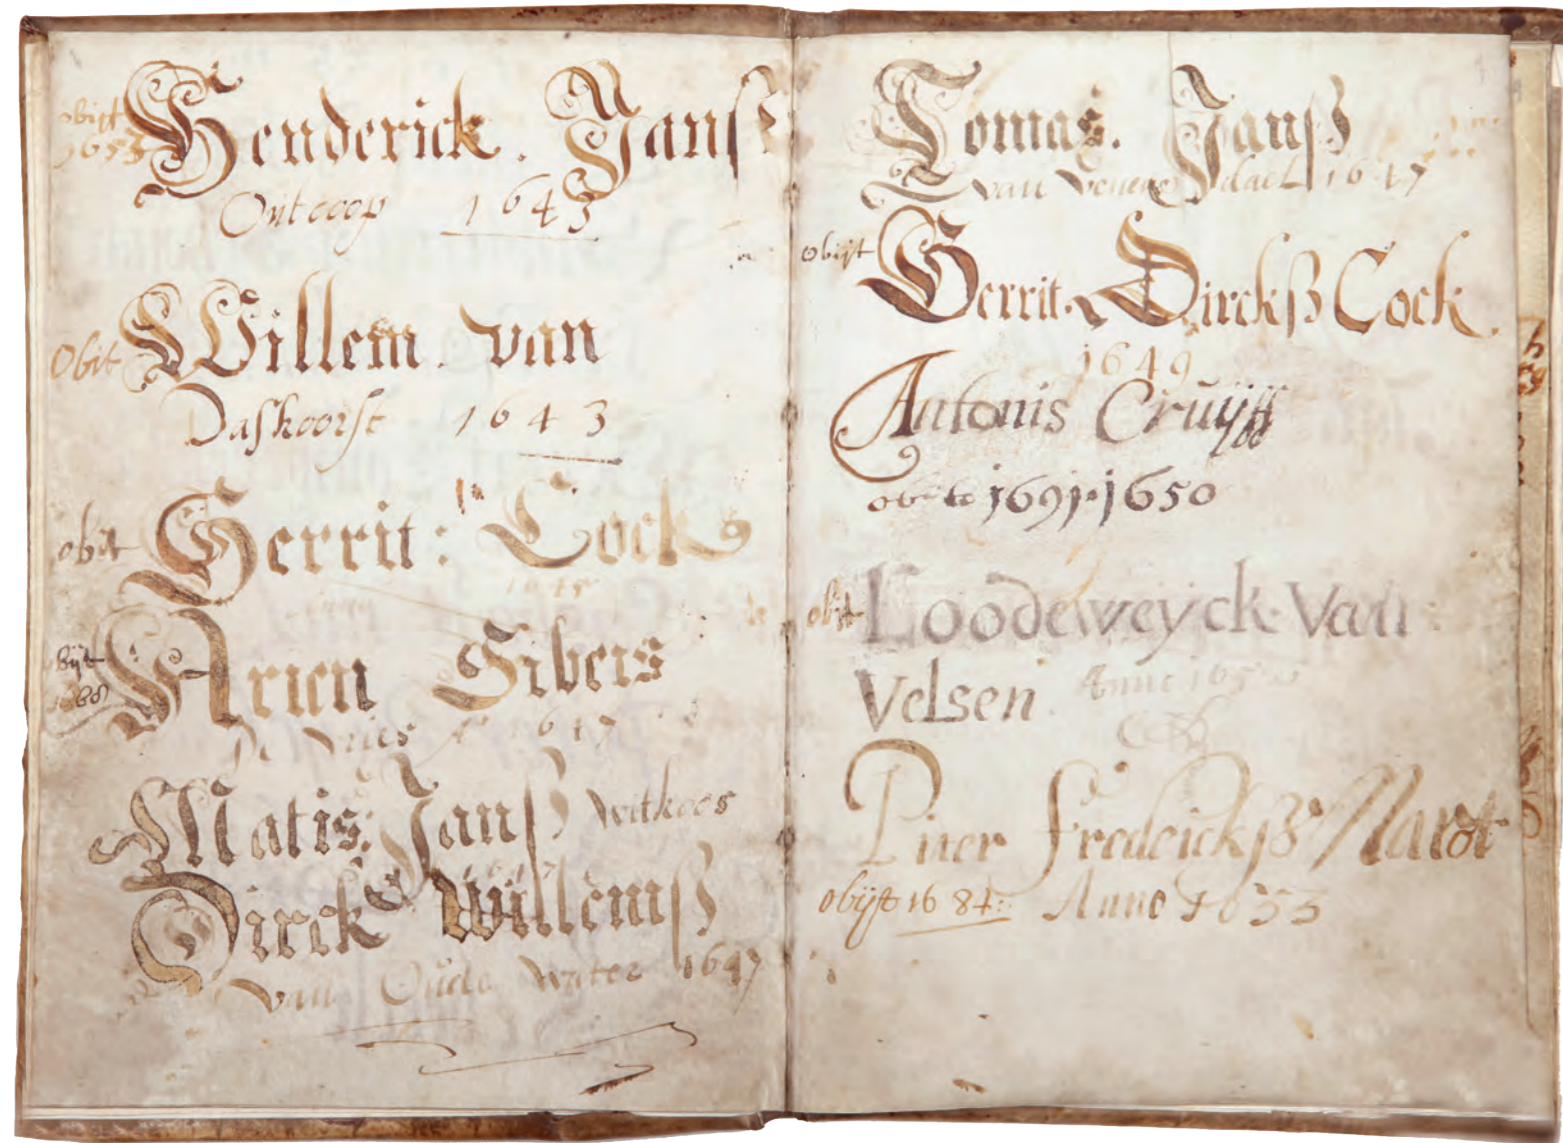 obijt Henderick. Janſz
1653
Oijtcoop 1643
Obit Willem. van
Daſhoorſt 1643
obit Gerrit: Cock
1645
obijt Arien Gibers
1668
De Vries A 1647
Matis: Janß witkoos
Dirck Willemß
van Oude water 1647
Tomas. Janß
van Venendael 1647
obijt Gerrit. Dirckß Cock.
1649
Antonis Cruijff
1691·1650
obit Loodeweyck· Van
Velsen Anno
Piter Fredrickß Mardt
obijt 1684 Anno 1653